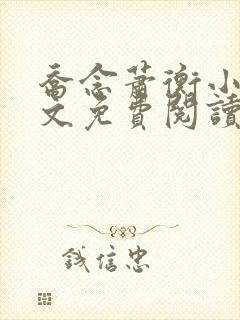 喬念蕭衡小
文免費閱讀
錢信忠